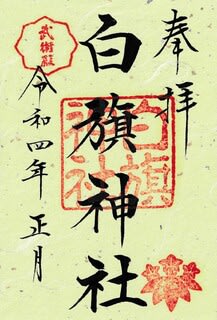 奉拝
白旗神社
白旗神社
武衛殿
令和四年正月